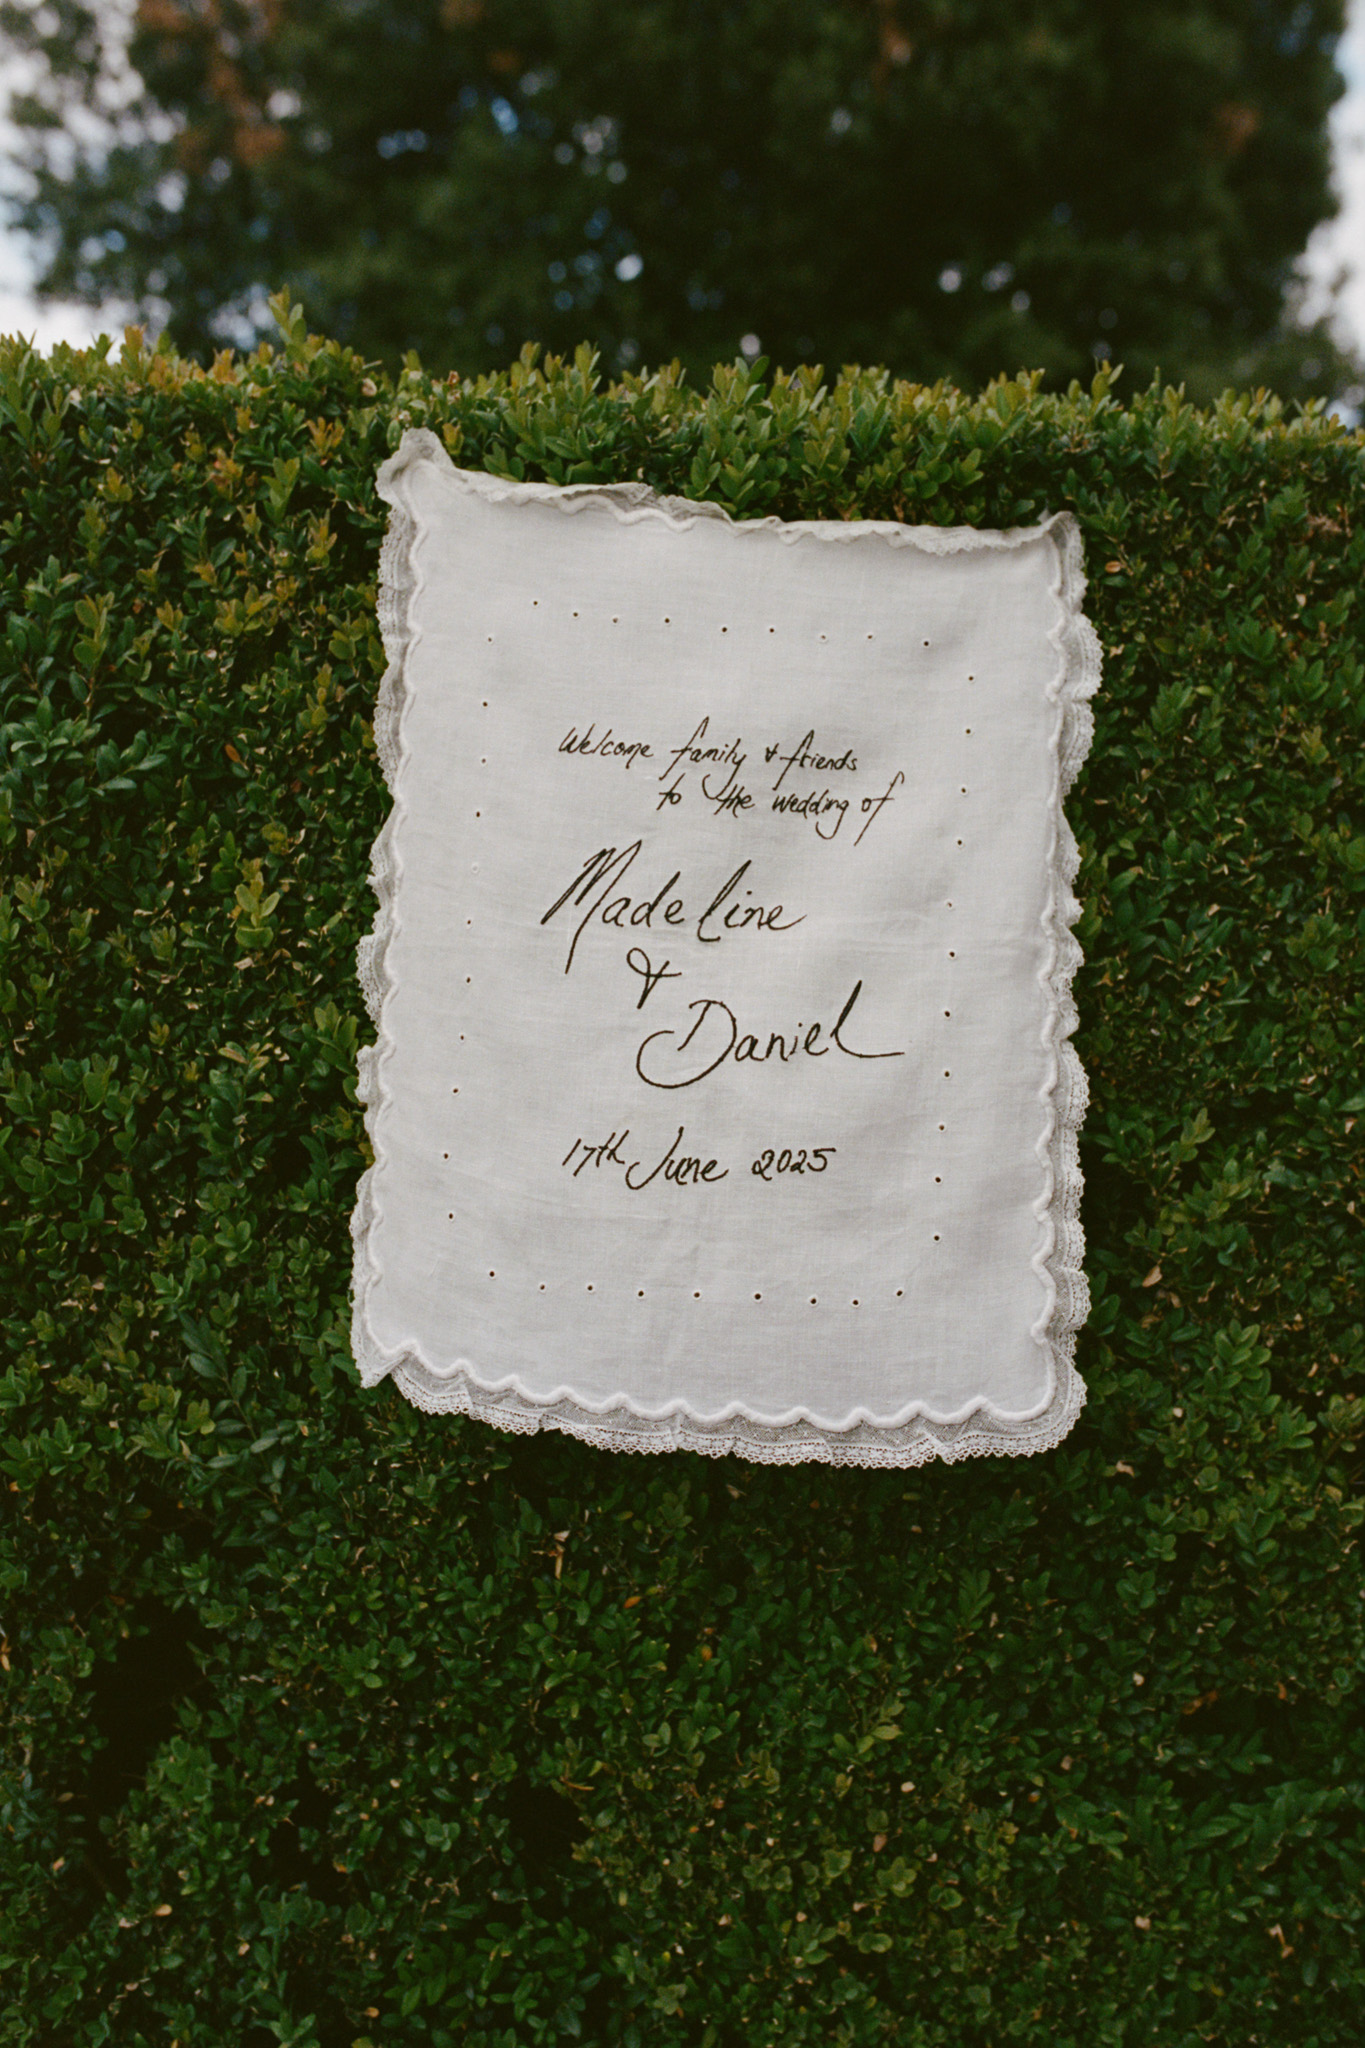 Welcome family & friends
to the wedding of
Madeline
&
Daniel
17th June 2025